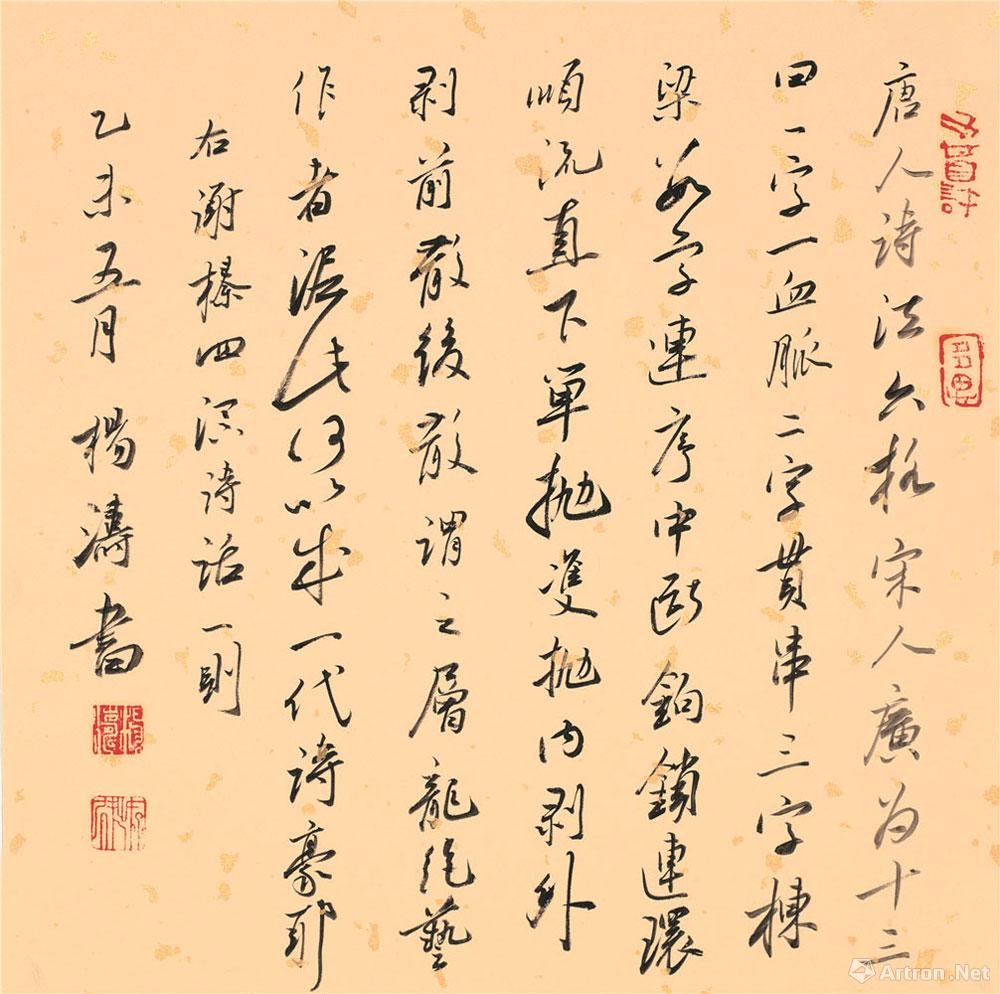 唐人詩法六格宋人廣为十三
曰一字一血脈二字貫串三字棟
梁數字連序中断鉤鎖連環
順流直下單抛雙抛内剥外
剥前散後散謂之層龍绝藝
作者泥此何以成一代詩豪耶
右謝榛四溟詩話一則
乙未五月楊濤書
Artron.Net